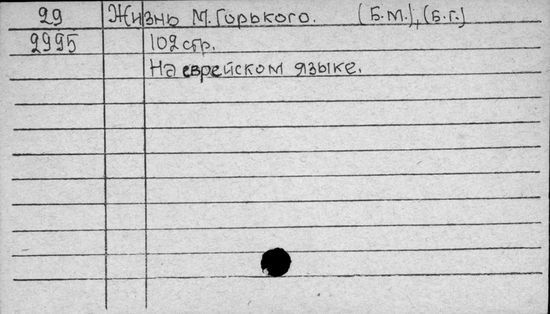 29 Жизнь М. Горького. (Б.М.), (Б.г.)
2995 102 стр.
На еврейском языке.